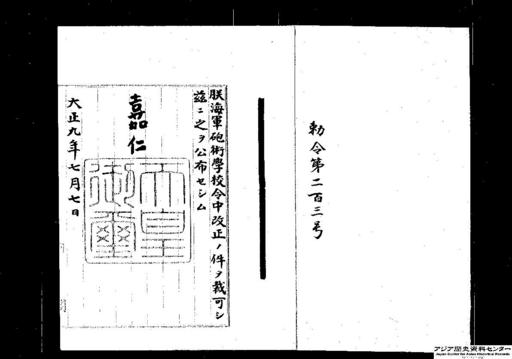 勅令第二百三号
朕海軍砲術學校令中改正ノ件ヲ裁可シ
茲ニ之ヲ公布セシム
嘉仁
天皇御璽
大正九年七月七日
アジア歴史資料センター
Japan Center for Asian Historical Records